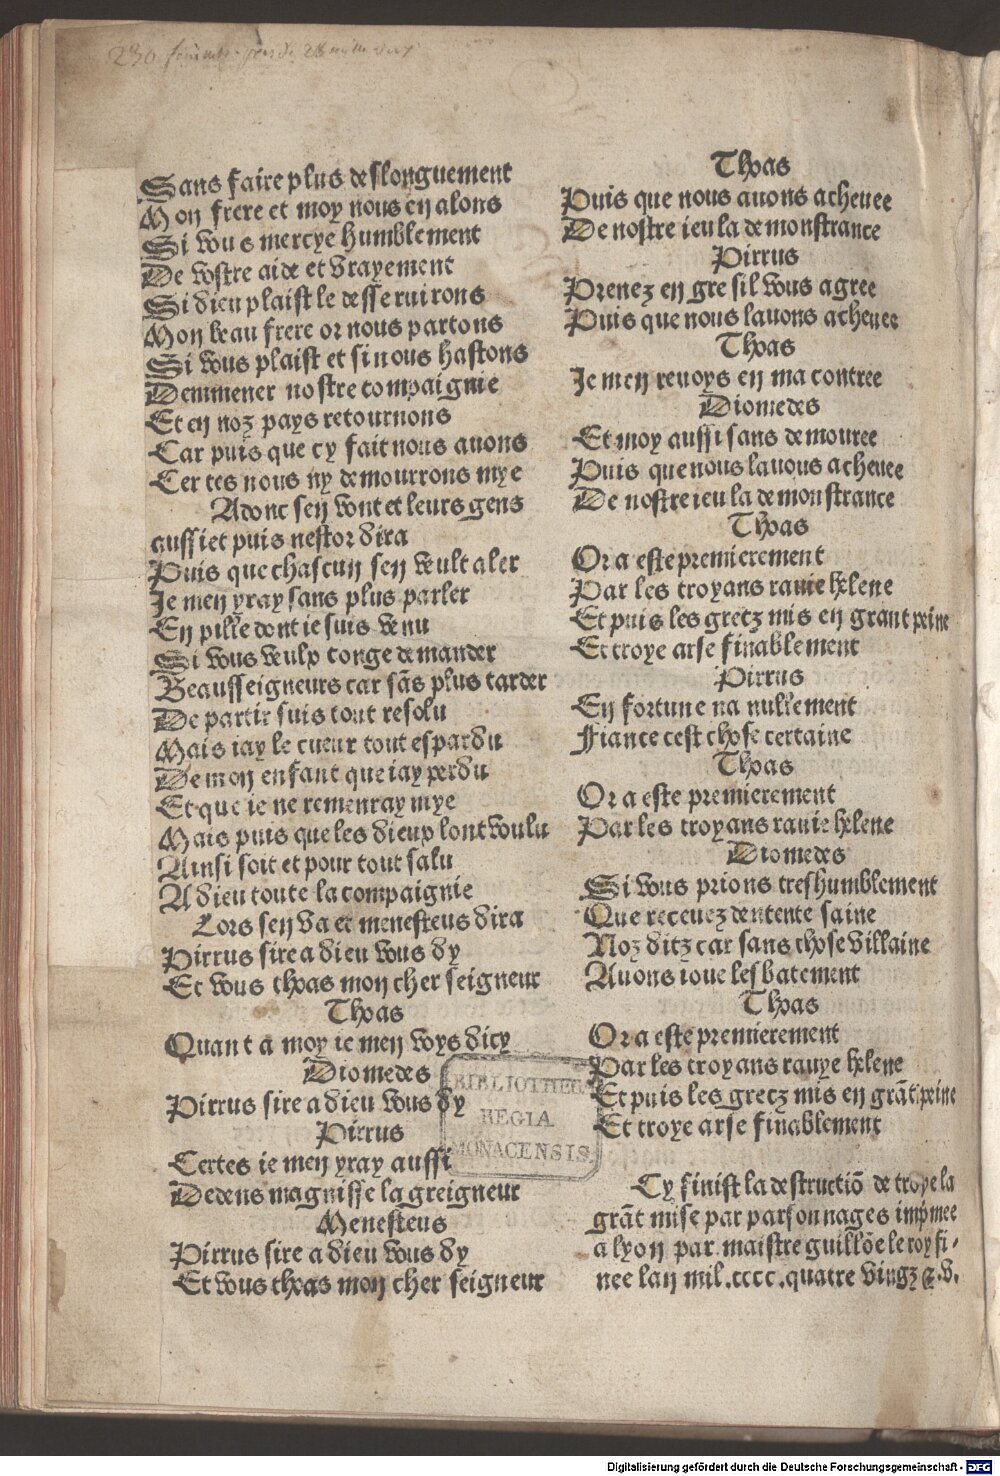 Sans faire plus deslonguement
Mon frere et moy nous en alons
Si vous mercye humblement
De vostre aide et vrayement
Si dieu plaist le desseruirons
Mon beau frere or nous partons
Si vous plaist et si nous hastons
Demmener nostre compaignie
Et en noz pays retournons
Car puis que cy fait nous auons
Certes nous ny demourrons mye
Adonc sen vont et leurs gens
aussi et puis nestor dira
Puis que chascun sen veult aler
Je men yray sans plus parler
En pille dont ie suis venu
Si vous veulx conge demander
Beausseigneurs car sãs plus tarder
De partir suis tout resolu
Mais iay le cueur tout espardu
De mon enfant que iay perdu
Et que ie ne remenray mye
Mais puis que les dieux lont voulu
Ainsi soit et pour tout salu
A dieu toute la compaignie
Lors sen va et menesteus dira
Pirrus sire a dieu vous dy
Et vous thoas mon cher seigneur
Thoas
Quant a moy ie men voys dicy
Diomedes
Pirrus sire a dieu vous dy
Pirrus
Certes ie men yray aussi
Dedens magnisse la greigneur
Menesteus
Pirrus sire a dieu vous dy
Et vous thoas mon cher seigneur
Thoas
Puis que nous auons acheuee
De nostre ieu la demonstrance
Pirrus
Prenez en gre sil vous agree
Puis que nous lauons acheuee
Thoas
Je men reuoys en ma contree
Diomedes
Et moy aussi sans demouree
Puis que nous lauons acheuee
De nostre ieu la demonstrance
Thoas
Or a este premierement
Par les troyans rauie helene
Et puis les gretz mis en grant peine
Et troye arse finablement
Pirrus
En fortune na nullement
Fiance cest chose certaine
Thoas
Or a este premierement
Par les troyans rauie helene
Diomedes
Si vous prions treshumblement
Que receuez dentente saine
Noz ditz car sans chose villaine
Auons ioue lesbatement
Thoas
Or a este premierement
Par les troyans rauye helene
Et puis les gretz mis en grãt peine
Et troye arse finablement
Cy finist la destructiõ de troye la
grãt mise par parsonnages impmee
a lyon par maistre guillõe le roy fi-
nee lan mil.cccc.quatre vingz &.v.
BIBLIOTHECA
REGIA
MONACENSIS
Digitalisierung gefördert durch die Deutsche Forschungsgemeinschaft - DFG